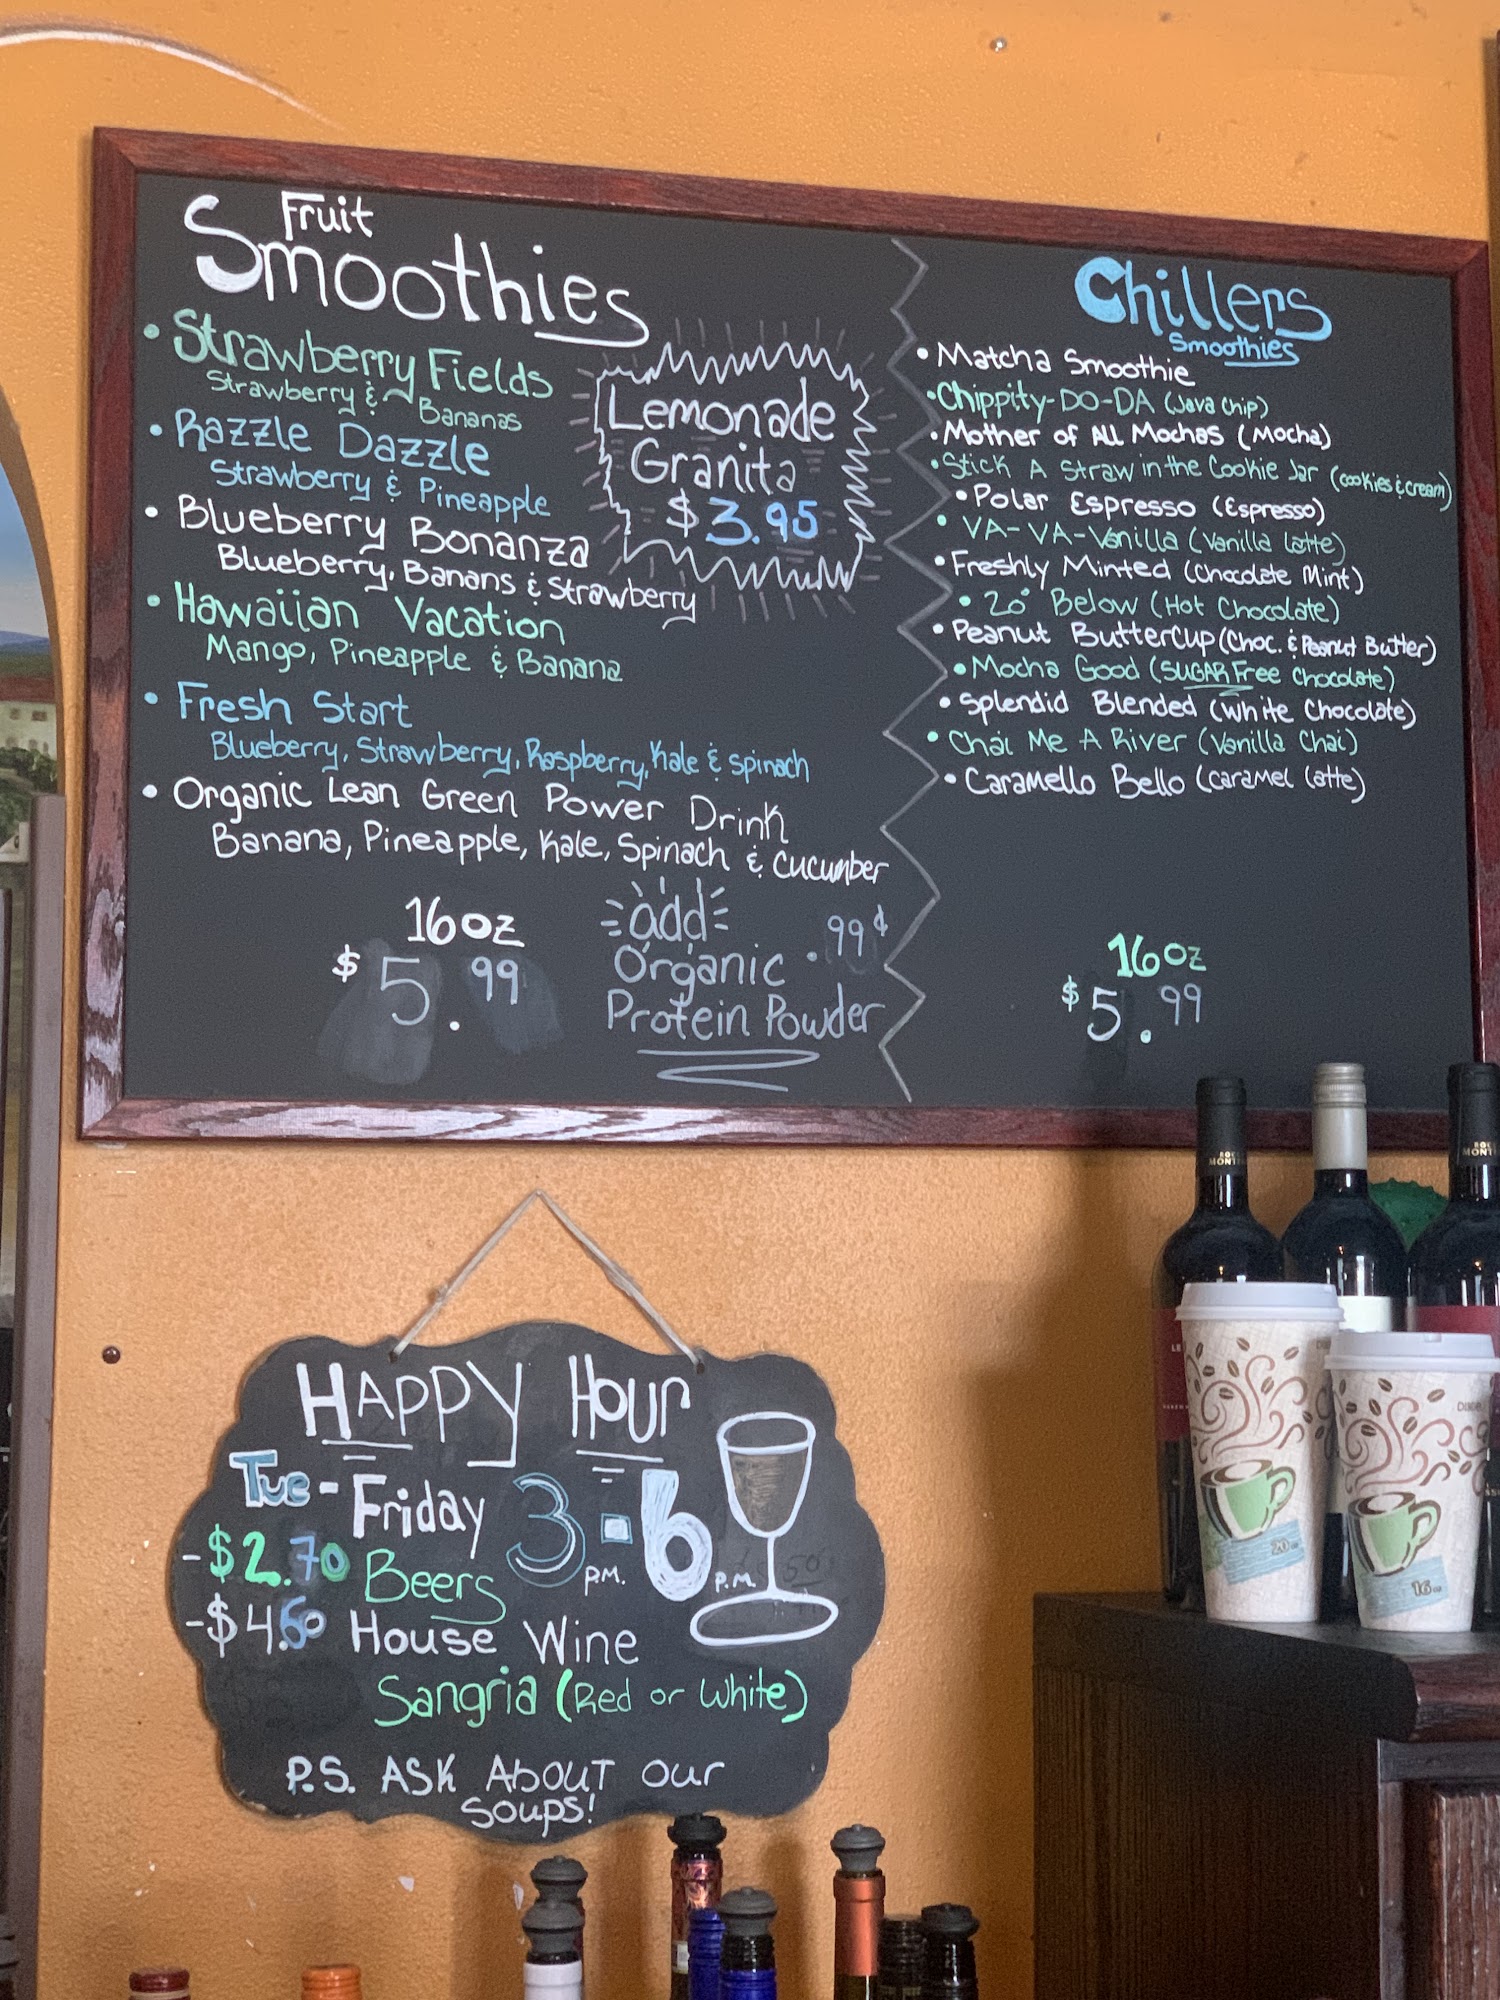 Fruit
Smoothies
• Strawberry Fields
Strawberry & Bananas
• Razzle Dazzle
Strawberry & Pineapple
• Blueberry Bonanza
Blueberry, Banans & Strawberry
• Hawaiian Vacation
Mango, Pineapple & Banana
• Fresh Start
Blueberry, Strawberry, Raspberry, Kale & spinach
• Organic Lean Green Power Drink
Banana, Pineapple, Kale, Spinach & Cucumber
16oz
$5.99
Lemonade
Granita
$3.95
add .99¢
Organic
Protein Powder
Chillers
Smoothies
• Matcha Smoothie
• Chippity-DO-DA (Java Chip)
• Mother of All Mochas (Mocha)
• Stick A Straw in the Cookie Jar (cookies & cream)
• Polar Espresso (Espresso)
• VA-VA-Vanilla (Vanilla Latte)
• Freshly Minted (Chocolate Mint)
• 20° Below (Hot Chocolate)
• Peanut Buttercup (Choc. & Peanut Butter)
• Mocha Good (SUGAR Free Chocolate)
• Splendid Blended (White Chocolate)
• Chai Me A River (Vanilla Chai)
• Caramello Bello (Caramel Latte)
16oz
$5.99
HAPPY Hour
Tue-Friday 3 P.M. - 6 P.M.
-$2.70 Beers
-$4.60 House Wine
Sangria (Red or White)
P.S. ASK ABOUT our
Soups!
20
16